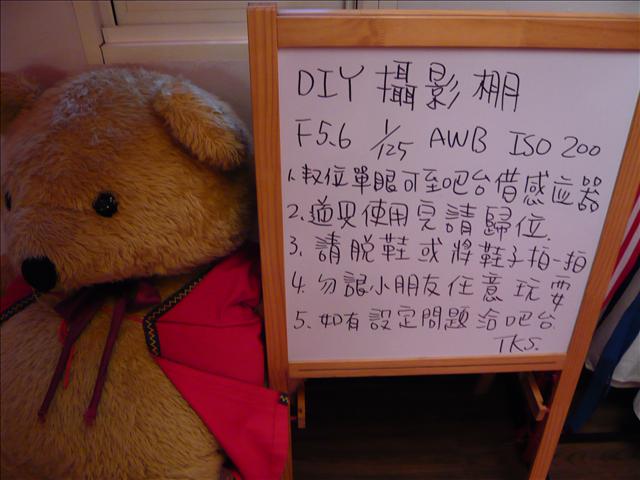 DIY 攝影棚
F5.6 1/125 AWB ISO 200
1. 數位單眼可至吧台借感应器
2. 道具使用完請歸位.
3. 請脱鞋或將鞋子拍一拍
4. 勿讓小朋友任意玩耍
5. 如有設定問題洽吧台.
TKS.